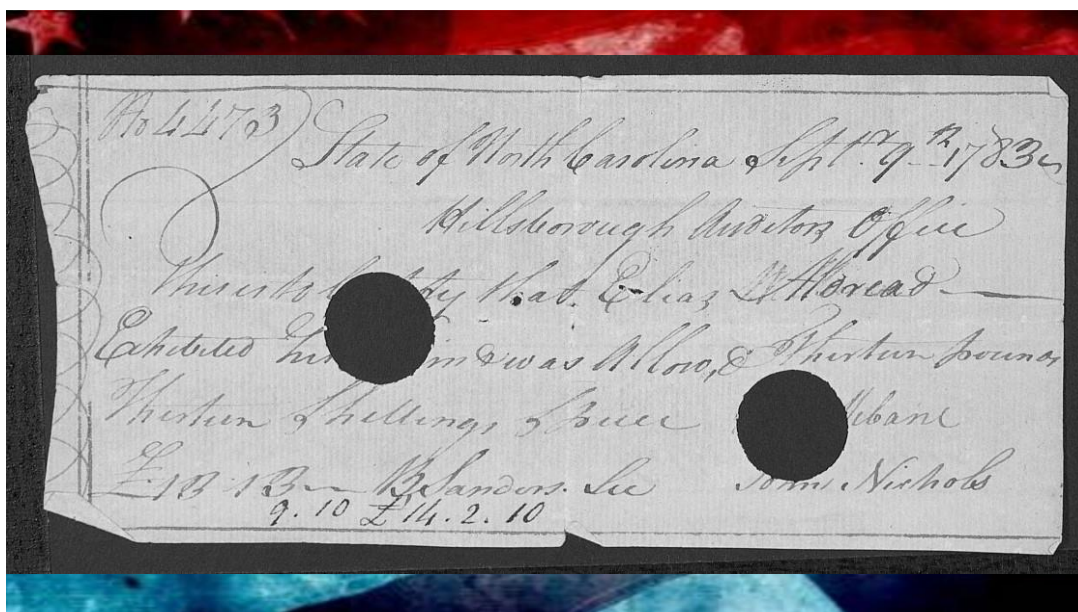 No 4473
State of North Carolina Sept.r 9th 1783
Hillsborough Auditors Office
This is to ty that Elias
Exhibited his im & was Allow,d Thirteen pounds
Thirteen Shillings Specie Mebane
£13 13 B Sanders. See John Nichols
9.10 £14.2.10